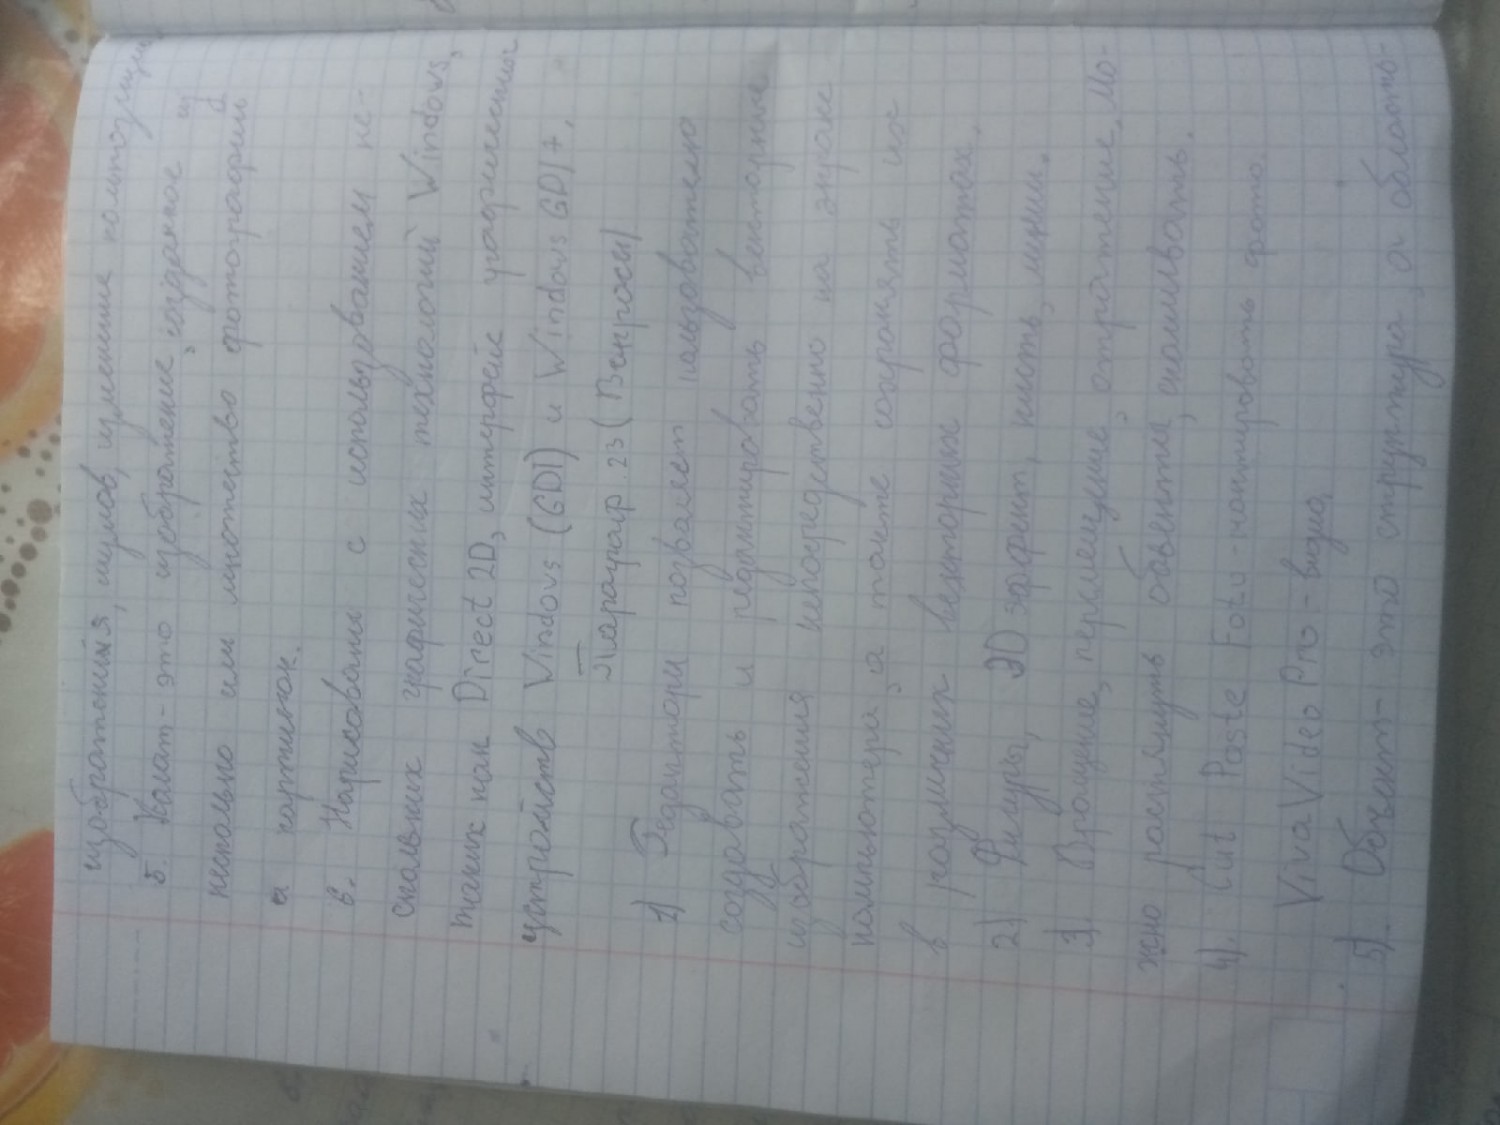 изображения, шумов, умение композиции
б. Колаж - это изображение, созданное из
несколько или множество фотографий
и картинок.
в. Нарисовани с использованием не-
скольких графических технологий Windows,
таких как Direct 2D, интерфейс графических
устройств Vindovs (GDI) и Windows GDI+.
Параграф 23 (Вопросы)
1) Редакторы позвалает пользователю
создавать и редактировать векторные
изображения непосредственно на экране
компьютера, а также сохранять их
в различных векторных форматах.
2) Фигуры, 3D эффект, кисть, линии.
3). Вращение, перемещение, отражение. Мо-
жно растянуть объекта, скашивать.
4). Cut Paste Foto - фото.
Viva Video Pro - видио
5). Объект - это структура, а область-